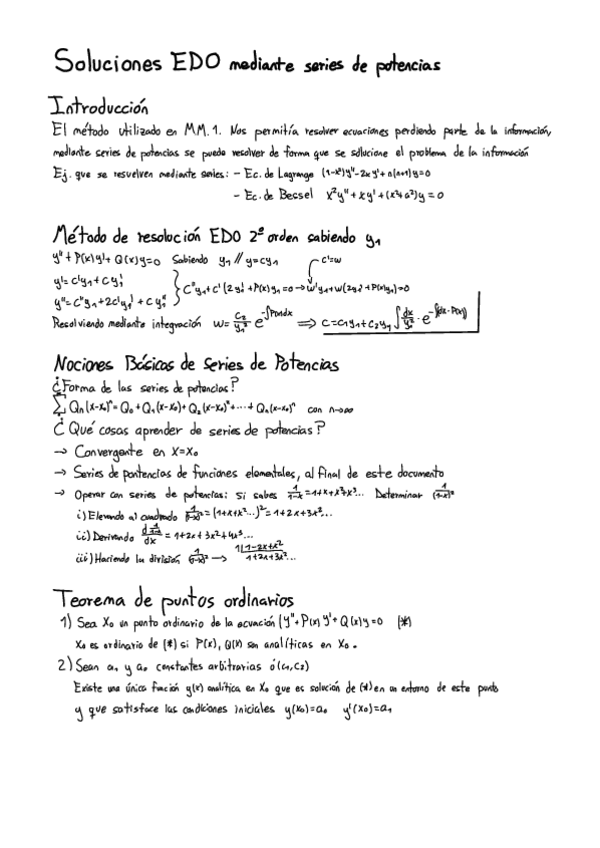 Soluciones EDO mediante series de potencias
Introducción
El método utilizado en MM.1. Nos permitía resolver ecuaciones perdiendo parte de la información,
mediante series de potencias se puede resolver de forma que se solucione el problema de la información
Ej. que se resuelven mediante series: - Ec. de Lagrange (1-x²)y''-2xy'+n(n+1)y=0
- Ec. de Bessel x²y''+xy'+(x²+a²)y=0
Método de resolución EDO 2º orden sabiendo y₁
y''+P(x)y'+Q(x)y=0 Sabiendo y₁ // y=cy₁
c'=w
y'=c'y₁+cy₁'
C''y₁+c'(2y₁'+P(x)y₁)=0→w'y₁+w(2y₁'+P(x)y₁)=0
y''=c''y₁+2c'y₁'+cy₁''
Resolviendo mediante integración w=c₂/y₁² e^-∫P(x)dx ⟹ C=C₁y₁+C₂y₁∫dx/y₁² · e^-∫dx·P(x)
Nociones Básicas de Series de Potencias
¿Forma de las series de potencias?
∑ Qn(x-x₀)ⁿ=Q₀+Q₁(x-x₀)+Q₂(x-x₀)²+...+Qn(x-x₀)ⁿ con n→∞
¿Qué cosas aprender de series de potencias?
→ Convergente en X=X₀
→ Series de pontencias de funciones elementales, al final de este documento
→ Operar con series de potencias: Si sabes 1/1-x=1+x+x²+x³... Determinar 1/(1-x)²
i) Elevando al cuadrado 1/(1-x)²=(1+x+x²...)²=1+2x+3x²...
ii) Derivando d 1/1-x / dx = 1+2x+3x²+4x³...
iii) Haciendo la división 1/(1-x)² → 1|1-2x+x²
1+2x+3x²...
Teorema de puntos ordinarios
1) Sea X₀ un punto ordinario de la ecuación (y''+P(x)y'+Q(x)y=0 (*)
X₀ es ordinario de (*) si P(x), Q(x) son analíticas en X₀.
2) Sean a₁ y a₀ constantes arbitrarias ó (c₁,c₂)
Existe una única función y(x) analítica en X₀ que es solución de (*) en un entorno de este punto
y que satisface las condiciones iniciales y(x₀)=a₀ y'(x₀)=a₁